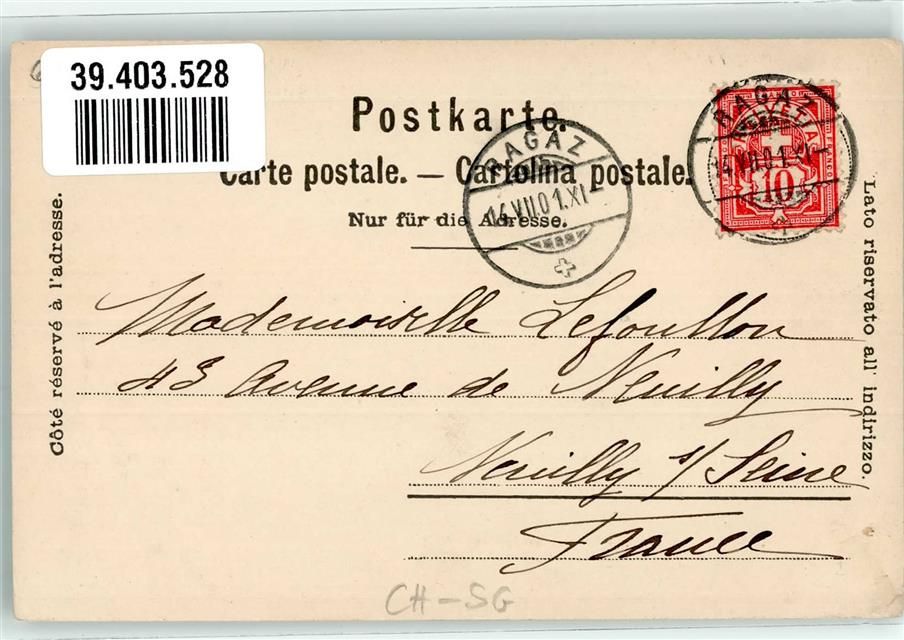 39.403.528
Postkarte.
Carte postale. — Cartolina postale.
Nur für die Adresse.
RAGAZ
14.VII.01.XI
RAGAZ
14.VII.01.XI
HELVETIA
FRANCO
10
Côté réservé à l'adresse.
Lato riservato all' indirizzo.
Mademoiselle Lefoullon
43 Avenue de Neuilly
Neuilly s/ Seine
France
CH-SG